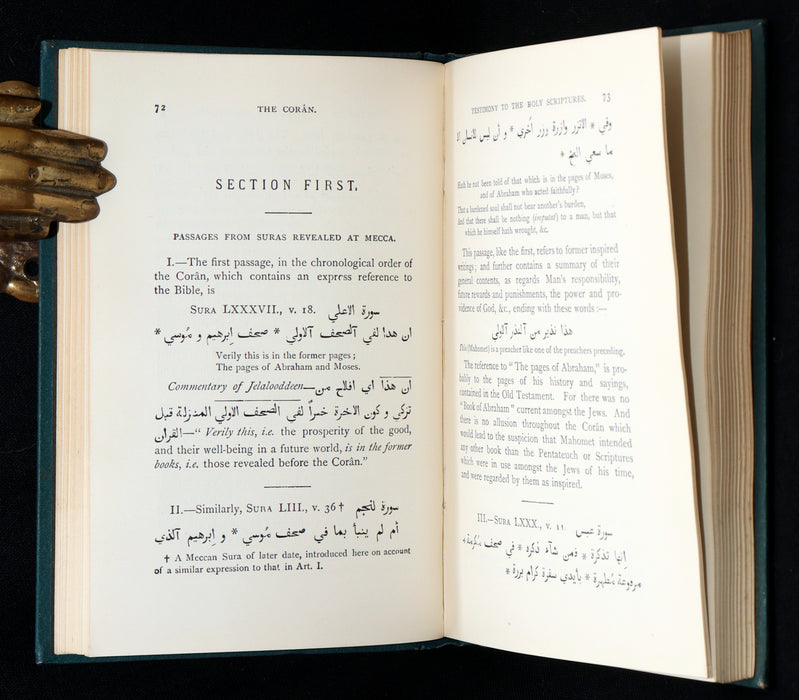 72
THE CORÂN.
SECTION FIRST.
PASSAGES FROM SURAS REVEALED AT MECCA.
I.—The first passage, in the chronological order of
the Corân, which contains an express reference to
the Bible, is
SURA LXXXVII., v. 18. سورة الاعلي
ان هذا لفي الصحف الاولي * صحف ابرهيم و موسي *
Verily this is in the former pages;
The pages of Abraham and Moses.
Commentary of Jelalooddeen—ان هذا اي افلاح من
تزكي و كون الاخرة خيراً لفي الصحف الاولي المنزلة قبل
القران—“ Verily this, i.e. the prosperity of the good,
and their well-being in a future world, is in the former
books, i.e. those revealed before the Corân.”
II.—Similarly, SURA LIII., v. 36 † سورة لنجم
أم لم ينبأ بما في صحف موسي * و ابرهيم الذي
† A Meccan Sura of later date, introduced here on account
of a similar expression to that in Art. I.
TESTIMONY TO THE HOLY SCRIPTURES. 73
وفي * الاتزر وازرة وزر أخري * و أن ليس للانسان الا
ما سعي الخ *
Hath he not been told of that which is in the pages of Moses,
and of Abraham who acted faithfully?
That a burdened soul shall not bear another's burden,
And that there shall be nothing (imputed) to a man, but that
which he himself hath wrought, &c.
This passage, like the first, refers to former inspired
writings; and further contains a summary of their
general contents, as regards Man's responsibility,
future rewards and punishments, the power and pro-
vidence of God, &c., ending with these words:—
هذا نذير من النذر الاولي
This (Mahomet) is a preacher like one of the preachers preceding.
The reference to “The pages of Abraham,” is pro-
bably to the pages of his history and sayings,
contained in the Old Testament. For there was no
“Book of Abraham” current amongst the Jews. And
there is no allusion throughout the Corân which
would lead to the suspicion that Mahomet intended
any other book than the Pentateuch or Scriptures
which were in use amongst the Jews of his time,
and were regarded by them as inspired.
III.—SURA LXXX., v. 11 سورة عبس
إنها تذكرة * فمن شآء ذكره * في صحف مكرمة *
مرفوعة مطهرة * بأيدي سفرة كرام بررة *